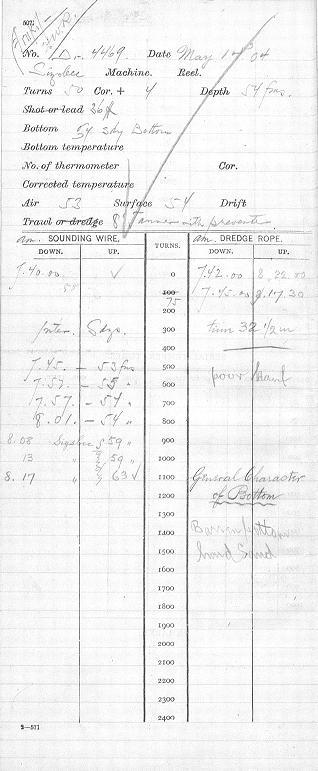 No. D. 4469 Date May 14 04
Sigsbee Machine. Reel.
Turns 50 Cor. + 4 Depth 54 fms.
Shot or lead 36 #
Bottom 54 Sky Bottom
Bottom temperature
No. of thermometer Cor.
Corrected temperature
Air 53 Surface 54 Drift
Trawl or dredge 8' Tanner with preventer
am. SOUNDING WIRE, TURNS. am. DREDGE ROPE,
DOWN. UP. DOWN. UP.
7.40.00 ✓ 0 7.42.00 8.22.00
100 7.45.00 8.17.30
75
200
Inter. Sdgs. 300 turn 32 1/2 m
400
7.45. - 53 fms 500 poor haul
7.51. - 55 " 600
7.57. - 54 " 700
8.01. - 54 " 800
8.08 Sigsbee 59 " 900
13 " 59 " 1000
8.17 " 63 ✓ 1100 General Character
1200 of Bottom
1300
1400 Barren bottom
1500 hard Sand
1600
1700
1800
1900
2000
2100
2200
2300
2400
2—571